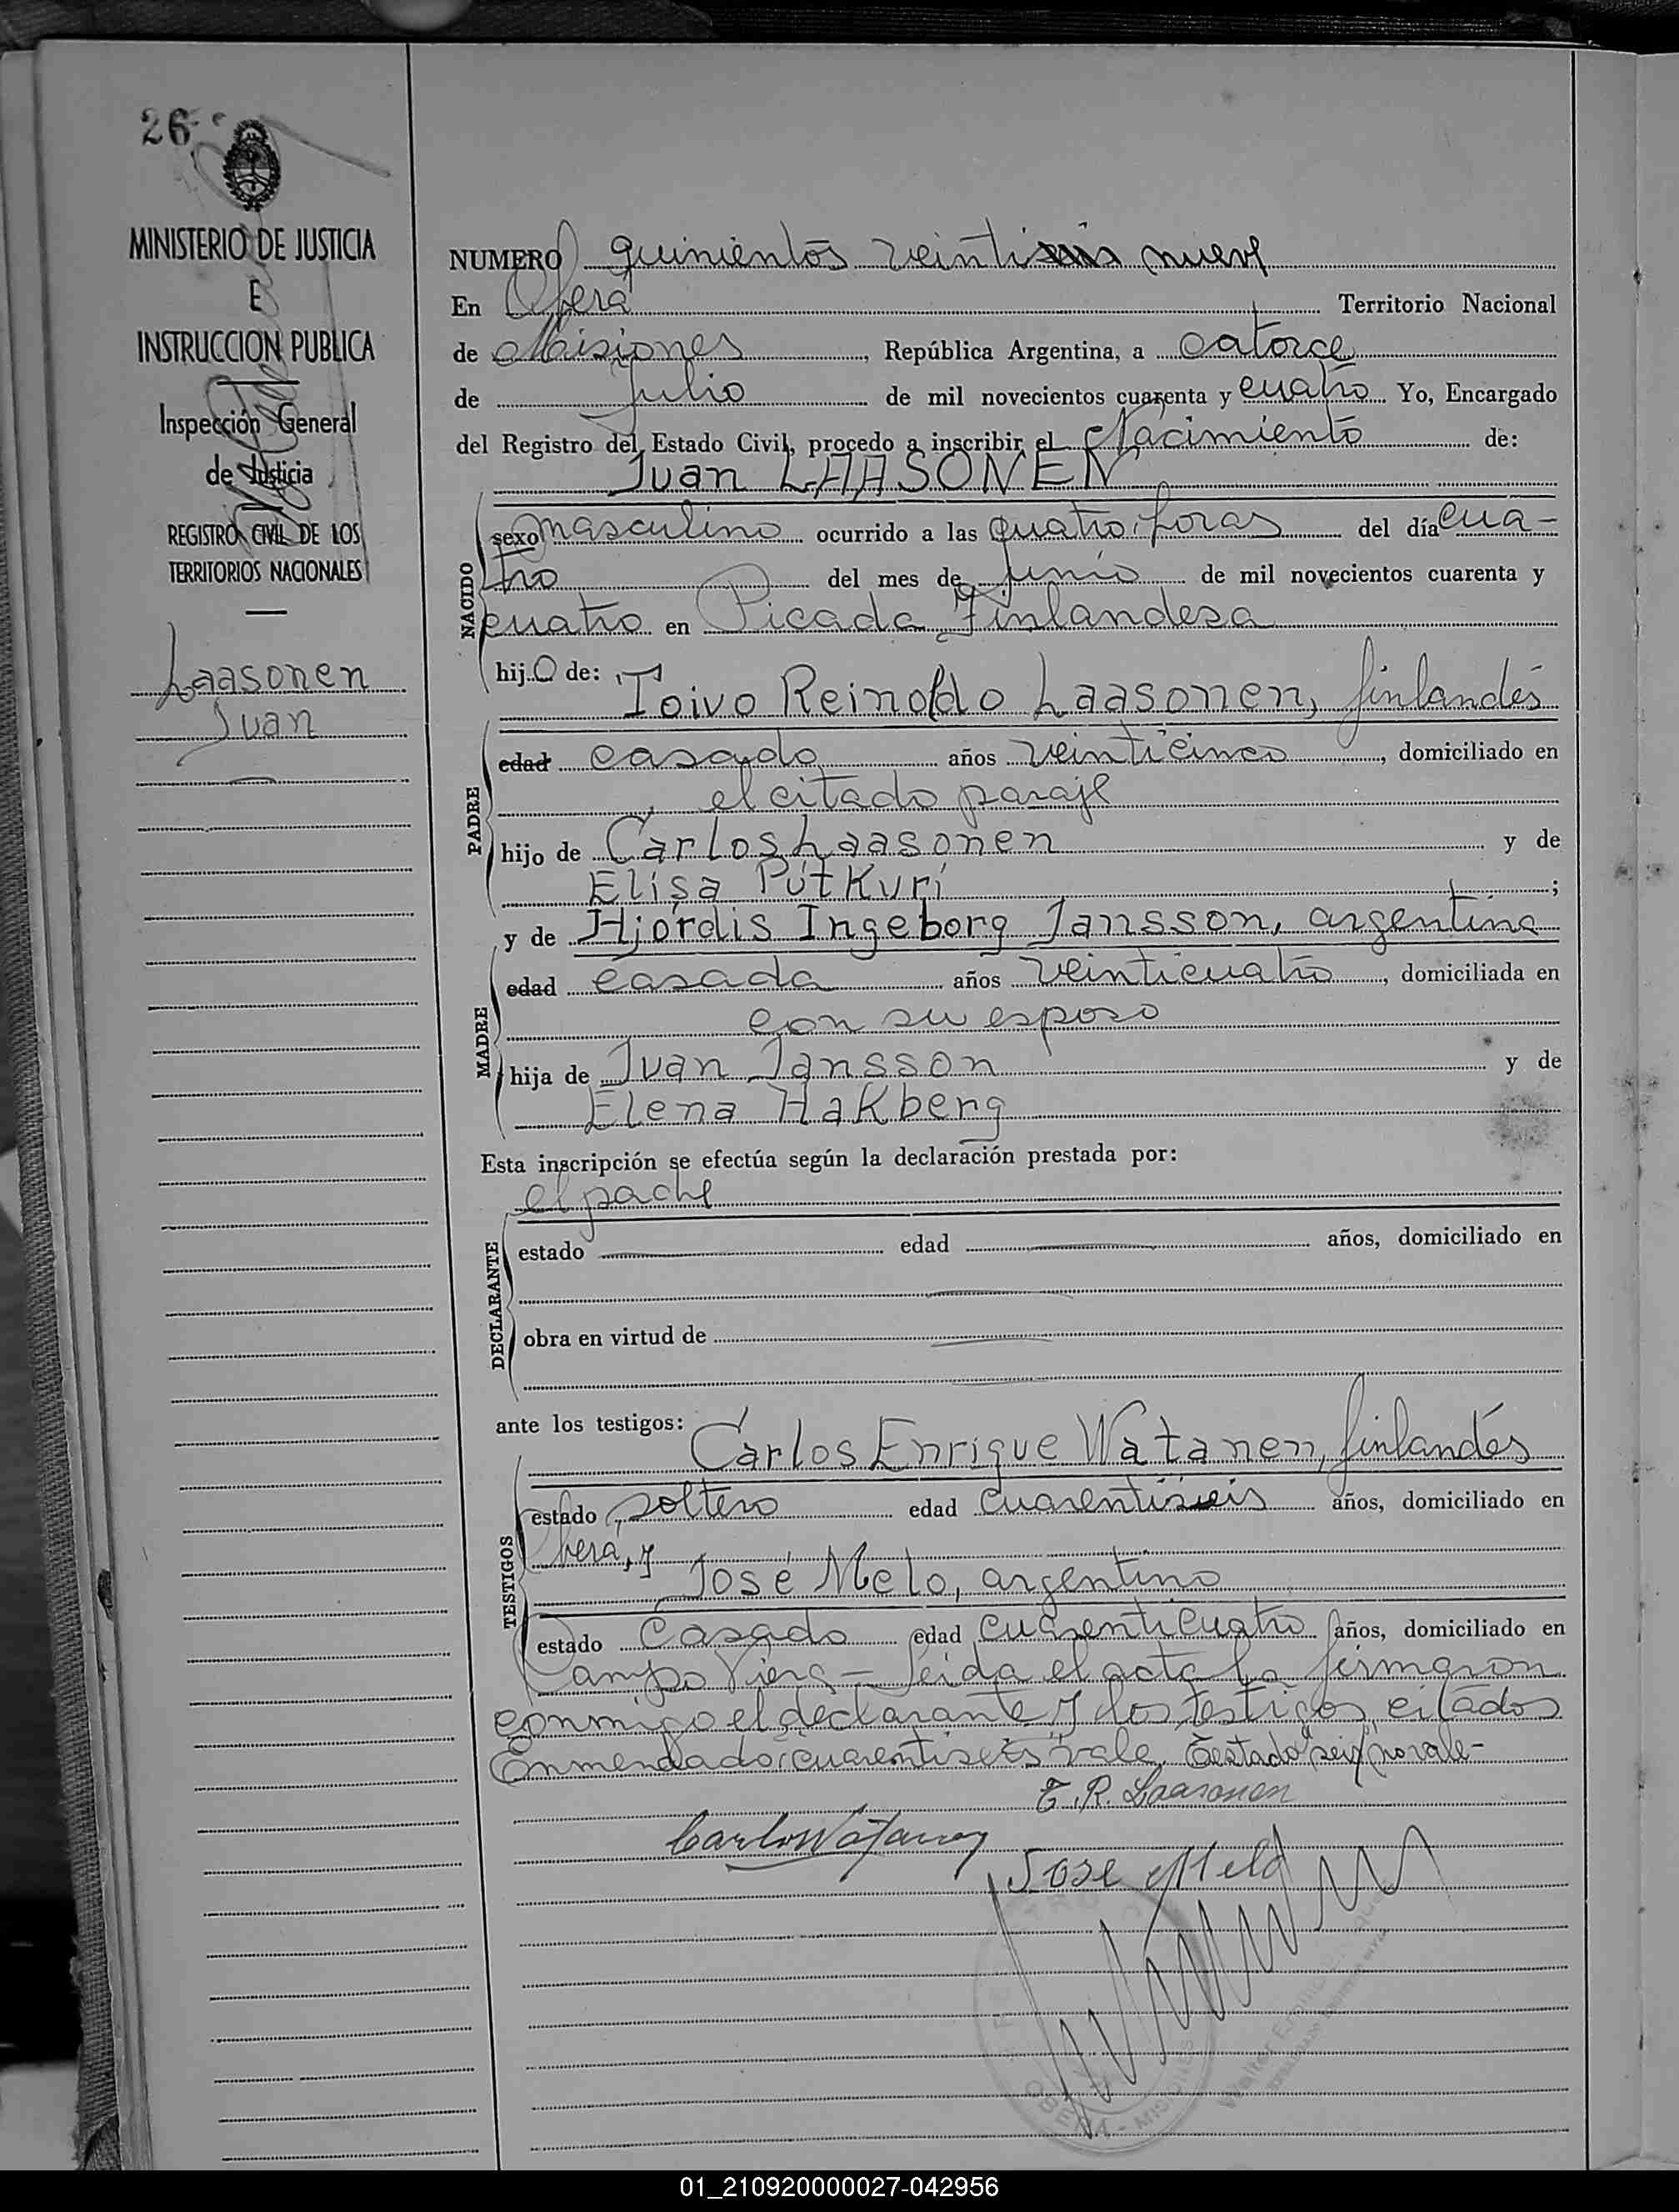 26
MINISTERIO DE JUSTICIA
E
INSTRUCCION PUBLICA
Inspección General
de Justicia
REGISTRO CIVIL DE LOS
TERRITORIOS NACIONALES
Laasonen
Juan
NUMERO quinientos veinti nueve
En Oberá Territorio Nacional
de Misiones, República Argentina, a catorce
de Julio de mil novecientos cuarenta y cuatro Yo, Encargado
del Registro del Estado Civil, procedo a inscribir el Nacimiento de:
Juan LAASONEN
NACIDO
sexo masculino ocurrido a las quatro horas del día cua-
tro del mes de junio de mil novecientos cuarenta y
cuatro en Picada Finlandesa
hijo de:
Toivo Reinoldo Laasonen, finlandés
PADRE
edad casado años veinticinco, domiciliado en
el citado paraje
hijo de Carlos Laasonen y de
Elisa Putkuri ;
y de Hjördis Ingeborg Jansson, argentina
MADRE
edad casada años veinticuatro, domiciliada en
con su esposo
hija de Juan Jansson y de
Elena Hakberg
Esta inscripción se efectúa según la declaración prestada por:
el padre
DECLARANTE
estado edad años, domiciliado en
obra en virtud de
ante los testigos:
Carlos Enrique Watanen, finlandés
TESTIGOS
estado soltero edad cuarentiseis años, domiciliado en
Oberá, y
José Melo, argentino
estado Casado edad cuarenticuatro años, domiciliado en
Campo Viera - Leida el acta la firmaron
conmigo el declarante y los testigos citados
Enmendado: cuarentiseis vale. Testado "seis" no vale-
T. R. Laasonen
Carlos Watanen
Jose Melo
OBERA - MISIONES
01_210920000027-042956